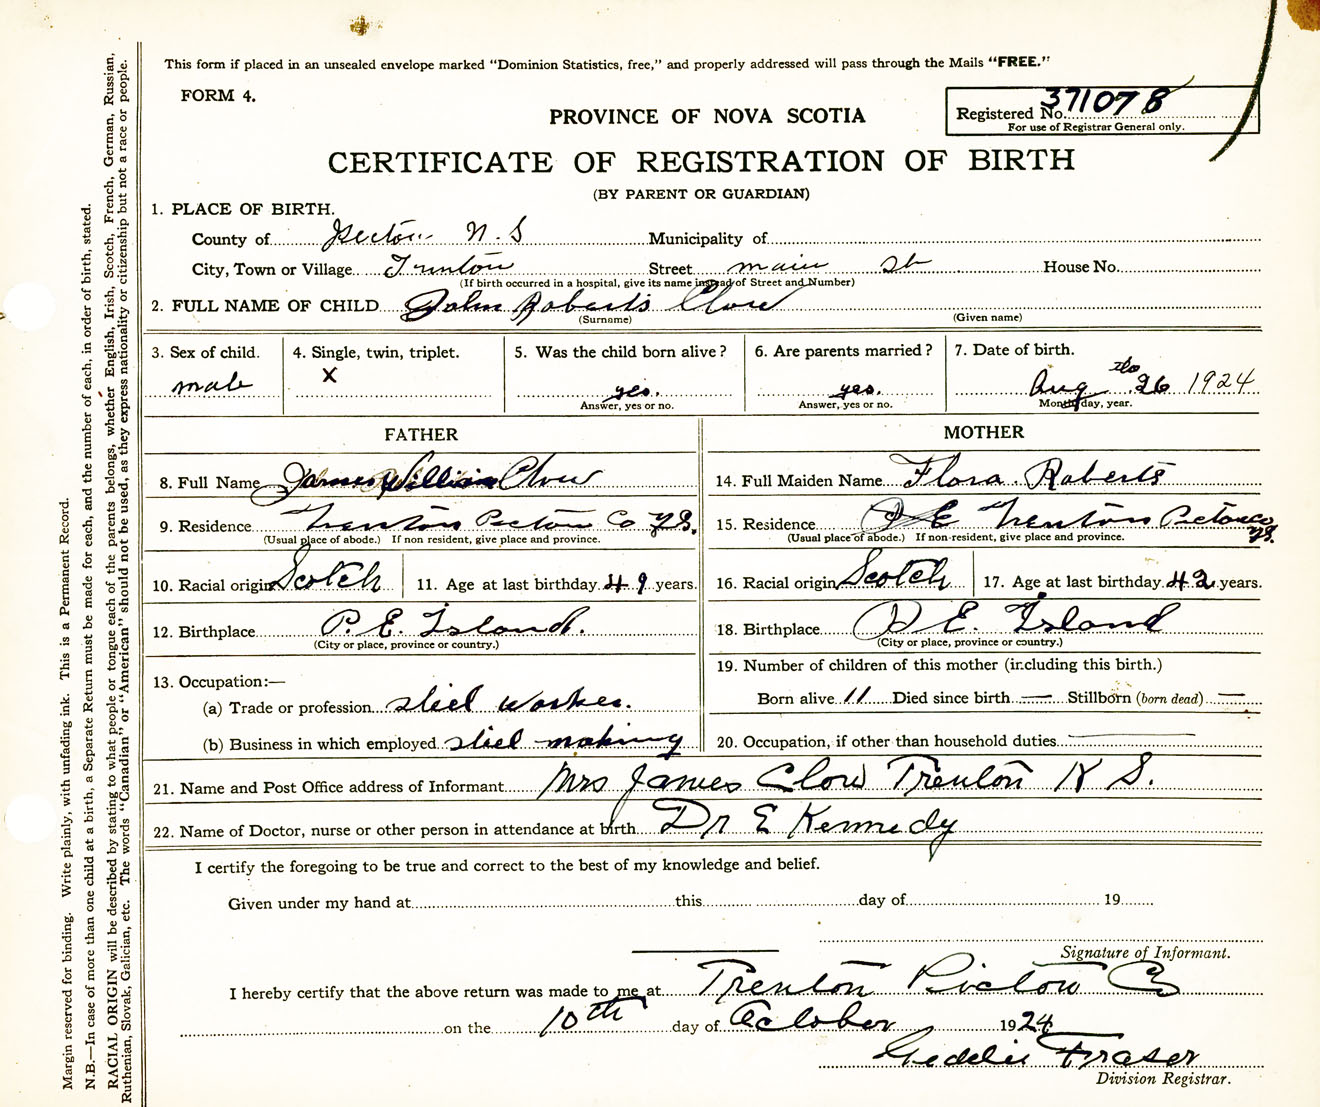 This form if placed in an unsealed envelope marked "Dominion Statistics, free," and properly addressed will pass through the Mails "FREE."
FORM 4.
Registered No. 371078
For use of Registrar General only.
PROVINCE OF NOVA SCOTIA
CERTIFICATE OF REGISTRATION OF BIRTH
(BY PARENT OR GUARDIAN)
1. PLACE OF BIRTH.
County of Pictou N.S Municipality of
City, Town or Village Trenton Street main St House No.
(If birth occurred in a hospital, give its name instead of Street and Number)
2. FULL NAME OF CHILD John Roberts Clow
(Surname) (Given name)
3. Sex of child. male
4. Single, twin, triplet. X
5. Was the child born alive? yes.
Answer, yes or no.
6. Are parents married? yes.
Answer, yes or no.
7. Date of birth. Aug 26 1924
Month, day, year.
FATHER
8. Full Name James William Clow
9. Residence Trenton Pictou Co N.S.
(Usual place of abode.) If non resident, give place and province.
10. Racial origin Scotch 11. Age at last birthday 49 years.
12. Birthplace P. E. Island.
(City or place, province or country.)
13. Occupation:—
(a) Trade or profession steel worker.
(b) Business in which employed steel making
MOTHER
14. Full Maiden Name Flora Roberts
15. Residence Trenton Pictou Co N.S.
(Usual place of abode.) If non-resident, give place and province.
16. Racial origin Scotch 17. Age at last birthday 42 years.
18. Birthplace P E. Island
(City or place, province or country.)
19. Number of children of this mother (including this birth.)
Born alive 11 Died since birth — Stillborn (born dead) —
20. Occupation, if other than household duties —
21. Name and Post Office address of Informant Mrs James Clow Trenton N S.
22. Name of Doctor, nurse or other person in attendance at birth Dr E Kennedy
I certify the foregoing to be true and correct to the best of my knowledge and belief.
Given under my hand at this day of 19
Signature of Informant.
I hereby certify that the above return was made to me at Trenton Pictou Co
on the 10th day of October 1924
Geddie Fraser
Division Registrar.
Margin reserved for binding. Write plainly, with unfading ink. This is a Permanent Record.
N.B.—In case of more than one child at a birth, a Separate Return must be made for each, and the number of each, in order of birth, stated.
RACIAL ORIGIN will be described by stating to what people or tongue each of the parents belongs, whether English, Irish, Scotch, French, German, Russian,
Ruthenian, Slovak, Galician, etc. The words "Canadian" or "American" should not be used, as they express nationality or citizenship but not a race or people.